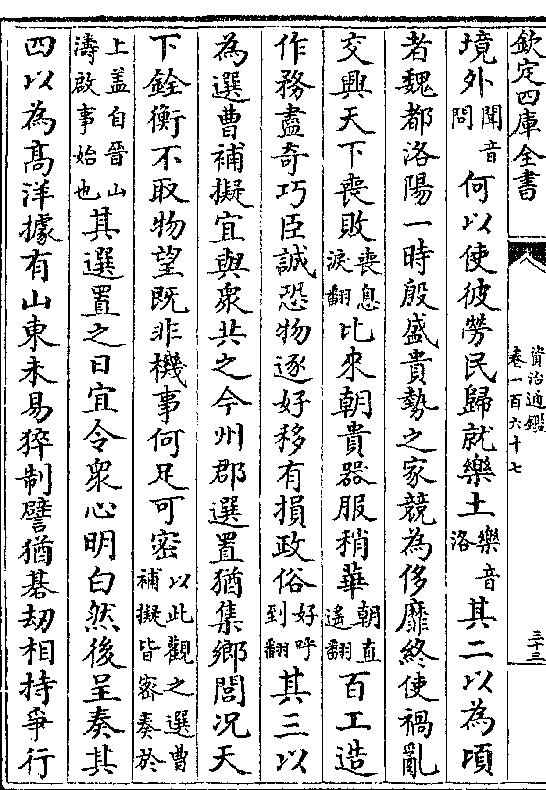 欽定四庫全書
資治通鑑
卷一百六十七
三十三
境外聞音問何以使彼勞民歸就樂土樂音洛其二以為頃
者魏都洛陽一時殷盛貴勢之家競為侈靡終使禍亂
交興天下喪敗喪息浪翻比來朝貴器服稍華朝直遙翻百工造
作務盡奇巧臣誠恐物逐好移有損政俗好呼到翻其三以
為選曹補擬宜與衆共之今州郡選置猶集鄉閭况天
下銓衡不取物望既非機事何足可密以此觀之選曹補擬皆密奏於
上盖自晉山濤啟事始也其選置之日宜令衆心明白然後呈奏其
四以為高洋據有山東未易猝制譬猶棊刼相持爭行